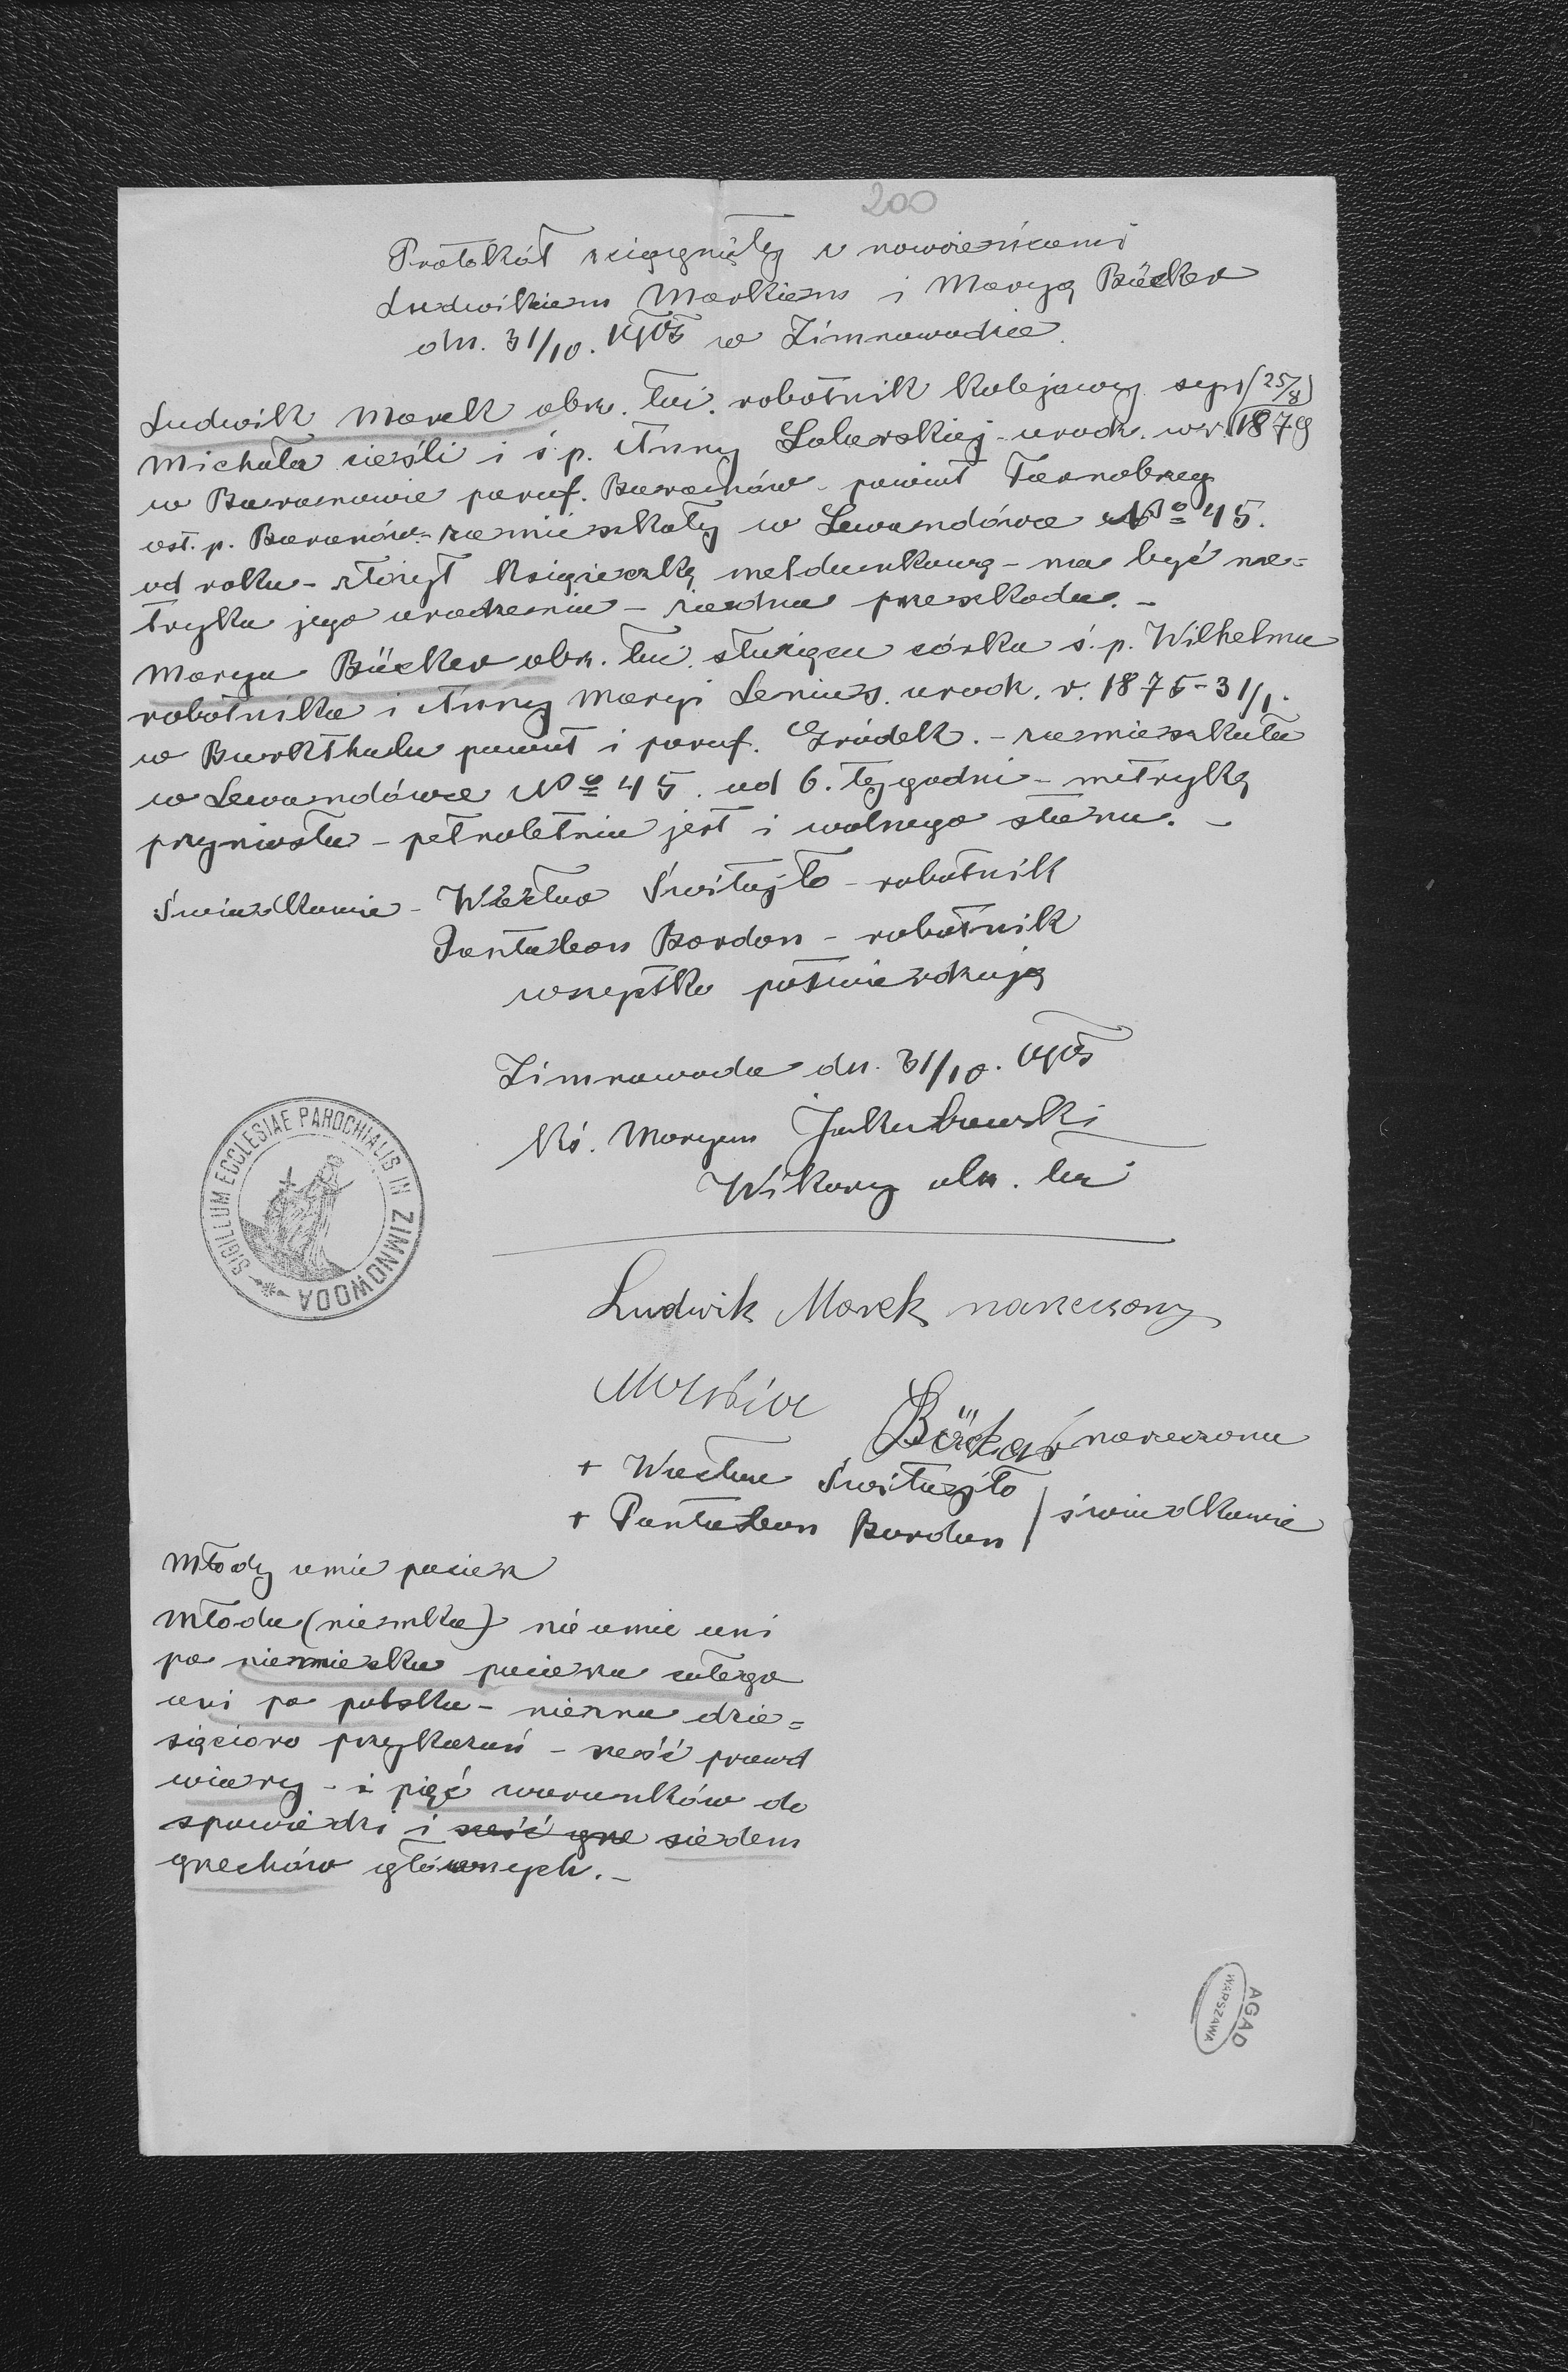 200
Protokół ściągnięty z nowożeńcami
Ludwikiem Markiem i Maryą Bücker
dn. 31/10. 1905 w Zimnawodzie.
Ludwik Marek obrz. łac. robotnik kolejowy syn (25/8)
Michała cieśli i ś.p. Anny Laberskiej - urodz. w r. 1879
w Baranowie paraf. Baranów - powiat Tarnobrzeg
ost. p. Baranów - zamieszkały w Lewandówce No 45.
od roku - złożył książeczkę meldunkową - ma być me=
tryka jego urodzenia - żadna przeszkoda. -
Marya Bücker obrz. łac. służąca córka ś.p. Wilhelma
robotnika i Anny Maryi Lenius. urodz. r. 1875 - 31/1.
w Burkthalu powiat i paraf. Gródek. - zamieszkała
w Lewandówce No 45. od 6. tygodni - metrykę
przyniosła - pełnoletnia jest i wolnego stanu. -
Świadkowie - Wacław Świtajło - robotnik
Pantaleon Bordon - robotnik
wszystko potwierdzają
Zimnawoda dn. 31/10. 1905
Ks. Maryan Jakubowski
Wikary obrz. łac
SIGILLUM ECCLESIAE PAROCHIALIS IN ZIMNOWODA
Ludwik Marek narzeczony
Maria Bücker narzeczona
+ Wacław Świtajło
+ Pantaleon Bordon | świadkowie
Młody umie pacierz
Młoda (niemka) nie umie ani
po niemiecku pacierza całego
ani po polsku - nie zna dzie=
sięcioro przykazań - sześć prawd
wiary - i pięć warunków do
spowiedzi i sześć grze siedem
grzechów głównych. -
AGAD
WARSZAWA